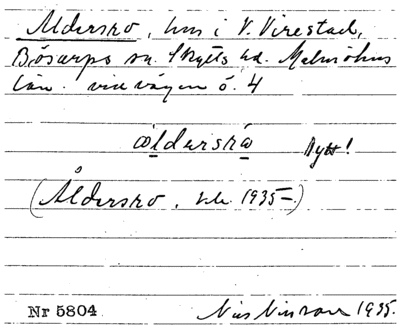 Åldersro, hus i V. Virestad,
Bösarps sn. Skytts hd. Malmöhus
län. vid vägen ö. 4
ålderskrå Nytt!
(Åldersro, 1935–)
Nr 5804 Nils Nilsson 1935.